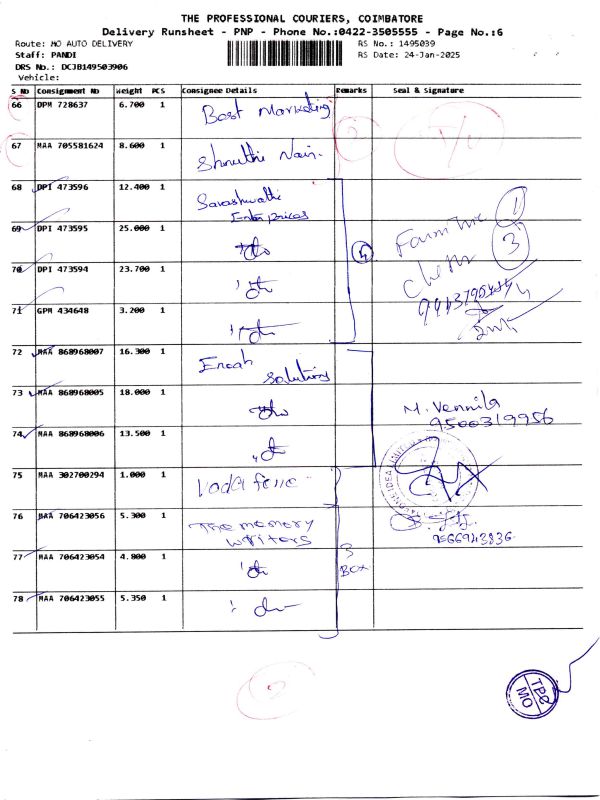 THE PROFESSIONAL COURIERS, COIMBATORE
Delivery Runsheet - PNP - Phone No.:0422-3505555 - Page No.:6
Route: MO AUTO DELIVERY RS No.: 1495039
Staff: PANDI RS Date: 24-Jan-2025
DRS No.: DCJB149503906
Vehicle:
S No Consignment No Weight PCS Consignee Details Remarks Seal & Signature
66 DPM 728637 6.700 1 Best Marketing
67 MAA 705581624 8.600 1 Shruthi Nair
68 DPI 473596 12.400 1 Sarashwathi
Enterprices
69 DPI 473595 25.000 1
70 DPI 473594 23.700 1
71 GPM 434648 3.200 1
4
1
3
72 MAA 868968007 16.300 1
Solutions
73 MAA 868968005 18.000 1
M. Vennila
9500319956
74 MAA 868968006 13.500 1
75 MAA 302700294 1.000 1
76 MAA 706423056 5.300 1 The memory
writers
9566943836
77 MAA 706423054 4.800 1
3
BOX
78 MAA 706423055 5.350 1
TPC
MO